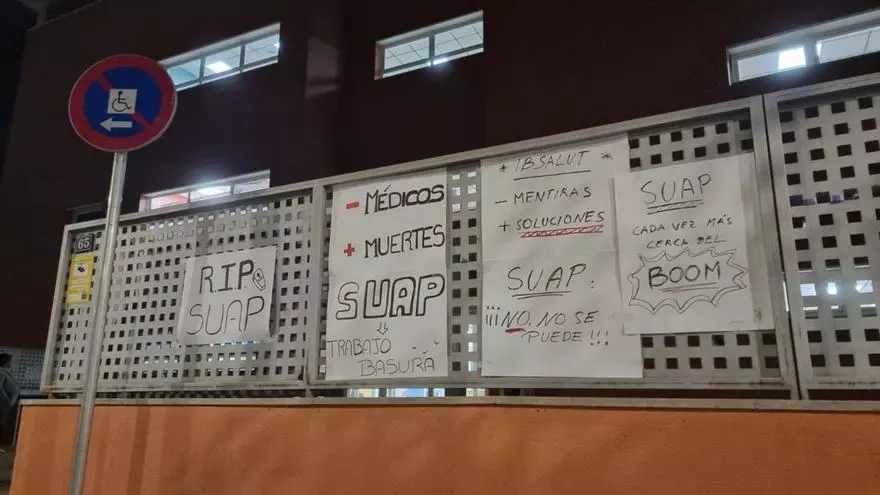 65
RIP
SUAP
- MÉDICOS
+ MUERTES
SUAP
TRABAJO
BASURA
* IBSALUT *
- MENTIRAS
+ SOLUCIONES
SUAP:
¡¡¡NO, NO SE
PUEDE!!!
SUAP
CADA VEZ MÁS
CERCA DEL
BOOM